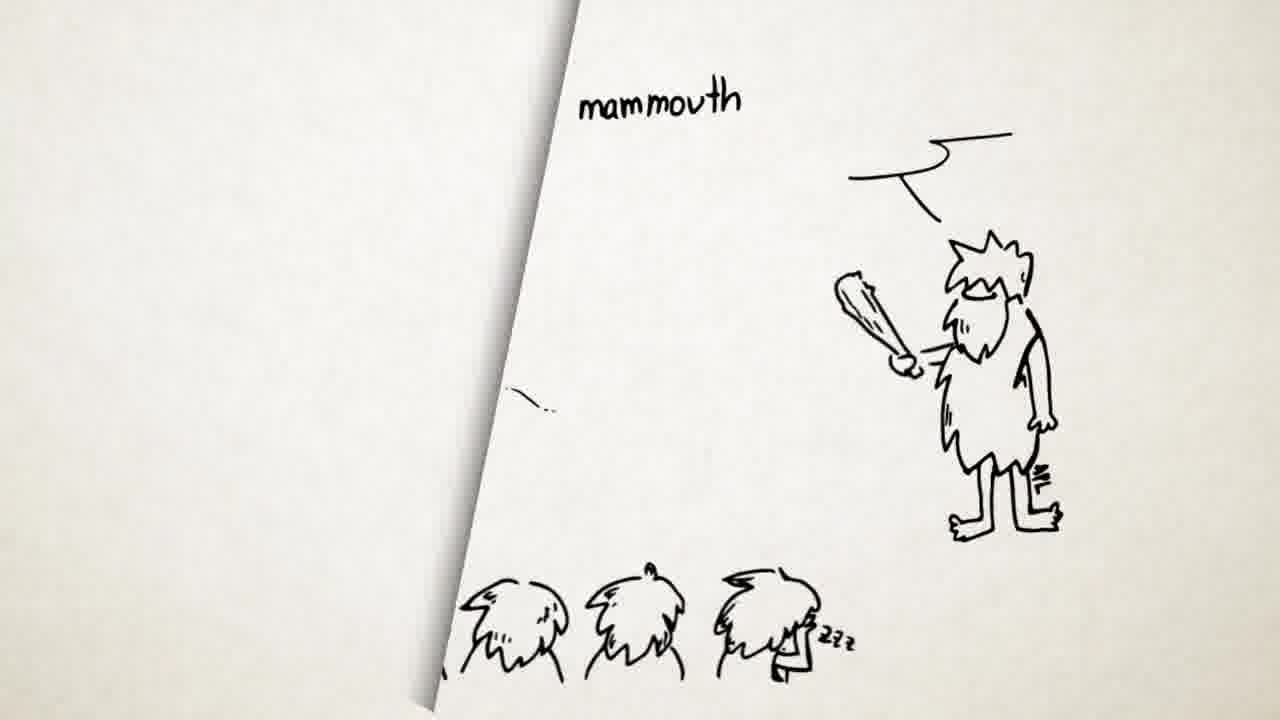 mammouth
zzz